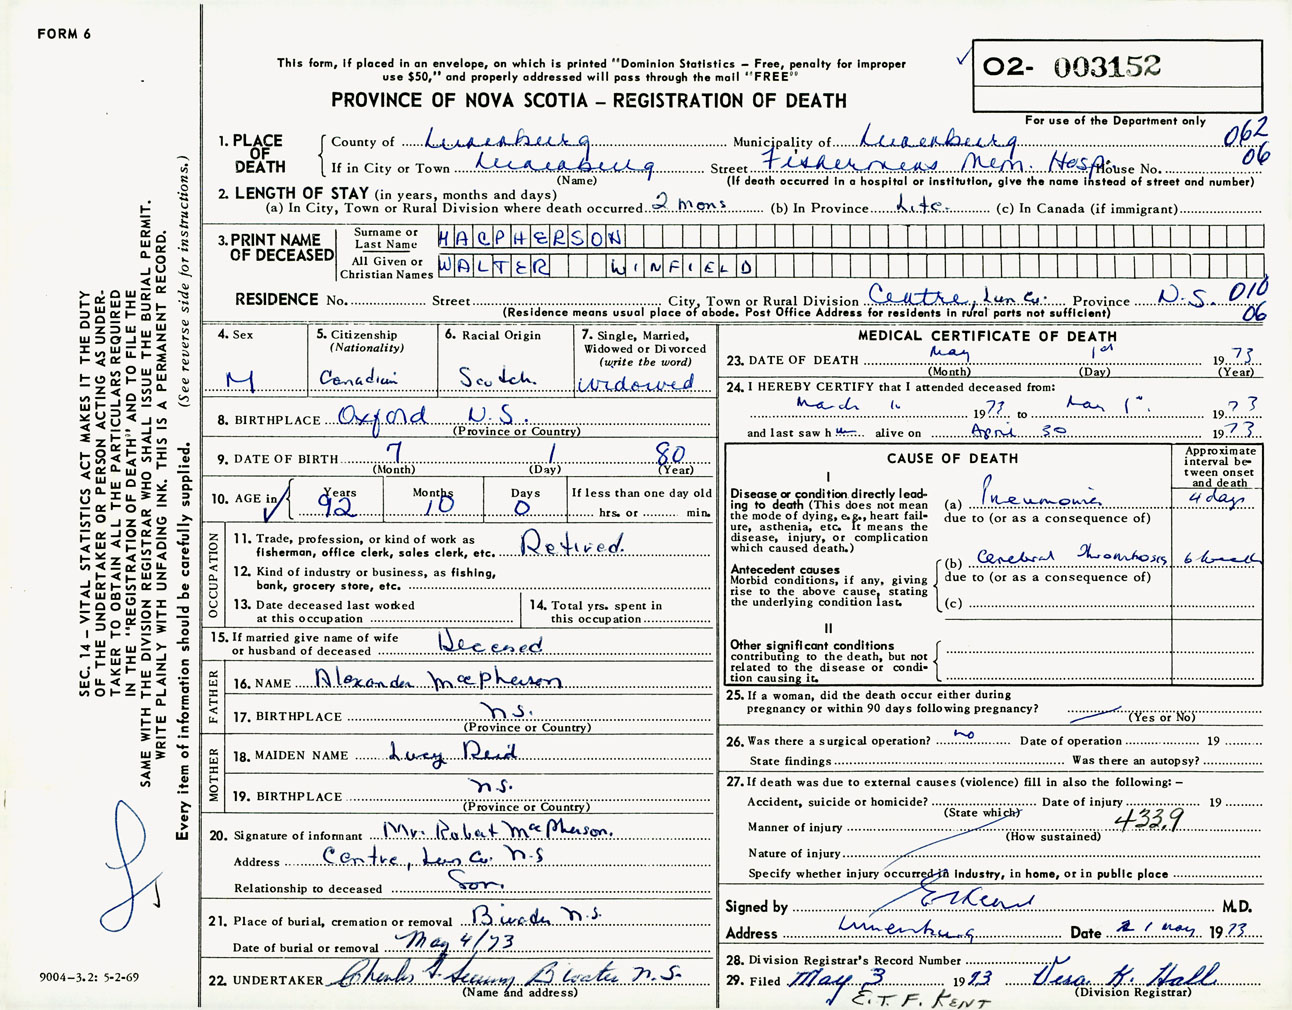 FORM 6
This form, if placed in an envelope, on which is printed "Dominion Statistics – Free, penalty for improper
use $50," and properly addressed will pass through the mail "FREE"
02- 003152
PROVINCE OF NOVA SCOTIA – REGISTRATION OF DEATH
For use of the Department only
062
06
1. PLACE OF DEATH
County of Lunenburg Municipality of Lunenburg
If in City or Town Lunenburg Street Fishermens Mem. Hosp. House No.
(Name) (If death occurred in a hospital or institution, give the name instead of street and number)
2. LENGTH OF STAY (in years, months and days)
(a) In City, Town or Rural Division where death occurred 2 mons (b) In Province Life. (c) In Canada (if immigrant)
3. PRINT NAME OF DECEASED
Surname or Last Name MACPHERSON
All Given or Christian Names WALTER WINFIELD
RESIDENCE No. Street City, Town or Rural Division Centre, Lun Co. Province N.S. 010
(Residence means usual place of abode. Post Office Address for residents in rural parts not sufficient) 06
4. Sex M
5. Citizenship (Nationality) Canadian
6. Racial Origin Scotch
7. Single, Married, Widowed or Divorced (write the word) Widowed
8. BIRTHPLACE Oxford N.S.
(Province or Country)
9. DATE OF BIRTH 7 1 80
(Month) (Day) (Year)
10. AGE in Years 92 Months 10 Days 0 If less than one day old
hrs. or min.
OCCUPATION
11. Trade, profession, or kind of work as
fisherman, office clerk, sales clerk, etc. Retired.
12. Kind of industry or business, as fishing,
bank, grocery store, etc.
13. Date deceased last worked
at this occupation
14. Total yrs. spent in
this occupation
15. If married give name of wife
or husband of deceased Deceased
FATHER
16. NAME Alexander MacPherson
17. BIRTHPLACE N.S.
(Province or Country)
MOTHER
18. MAIDEN NAME Lucy Reid
19. BIRTHPLACE N.S.
(Province or Country)
20. Signature of informant Mr. Robert MacPherson.
Address Centre, Lun Co. N.S
Relationship to deceased Son.
21. Place of burial, cremation or removal N.S.
Date of burial or removal May 4/73
22. UNDERTAKER Charles N.S.
(Name and address)
MEDICAL CERTIFICATE OF DEATH
23. DATE OF DEATH May 1st 1973
(Month) (Day) (Year)
24. I HEREBY CERTIFY that I attended deceased from:
March 1973 to May 1st. 1973
and last saw him alive on April 30 1973
CAUSE OF DEATH
Approximate interval between onset and death
I
Disease or condition directly leading to death (This does not mean the mode of dying, e.g., heart failure, asthenia, etc. It means the disease, injury, or complication which caused death.)
(a) Pneumonia 4 days
due to (or as a consequence of)
Antecedent causes
Morbid conditions, if any, giving rise to the above cause, stating the underlying condition last.
(b) Cerebral Thrombosis 6 weeks
due to (or as a consequence of)
(c)
II
Other significant conditions
contributing to the death, but not related to the disease or condition causing it.
25. If a woman, did the death occur either during
pregnancy or within 90 days following pregnancy?
(Yes or No)
26. Was there a surgical operation? no Date of operation 19
State findings Was there an autopsy?
27. If death was due to external causes (violence) fill in also the following: –
Accident, suicide or homicide? Date of injury 19
(State which)
Manner of injury 433.9
(How sustained)
Nature of injury
Specify whether injury occurred in industry, in home, or in public place
Signed by M.D.
Address Lunenburg Date 1 May 1973
28. Division Registrar's Record Number
29. Filed May 3 1973 Vera K. Hall
(Division Registrar)
E.T.F. KENT
SEC. 14 – VITAL STATISTICS ACT MAKES IT THE DUTY
OF THE UNDERTAKER OR PERSON ACTING AS UNDER-
TAKER TO OBTAIN ALL THE PARTICULARS REQUIRED
IN THE "REGISTRATION OF DEATH" AND TO FILE THE
SAME WITH THE DIVISION REGISTRAR WHO SHALL ISSUE THE BURIAL PERMIT.
WRITE PLAINLY WITH UNFADING INK. THIS IS A PERMANENT RECORD.
Every item of information should be carefully supplied. (See reverse side for instructions.)
9004–3.2: 5-2-69